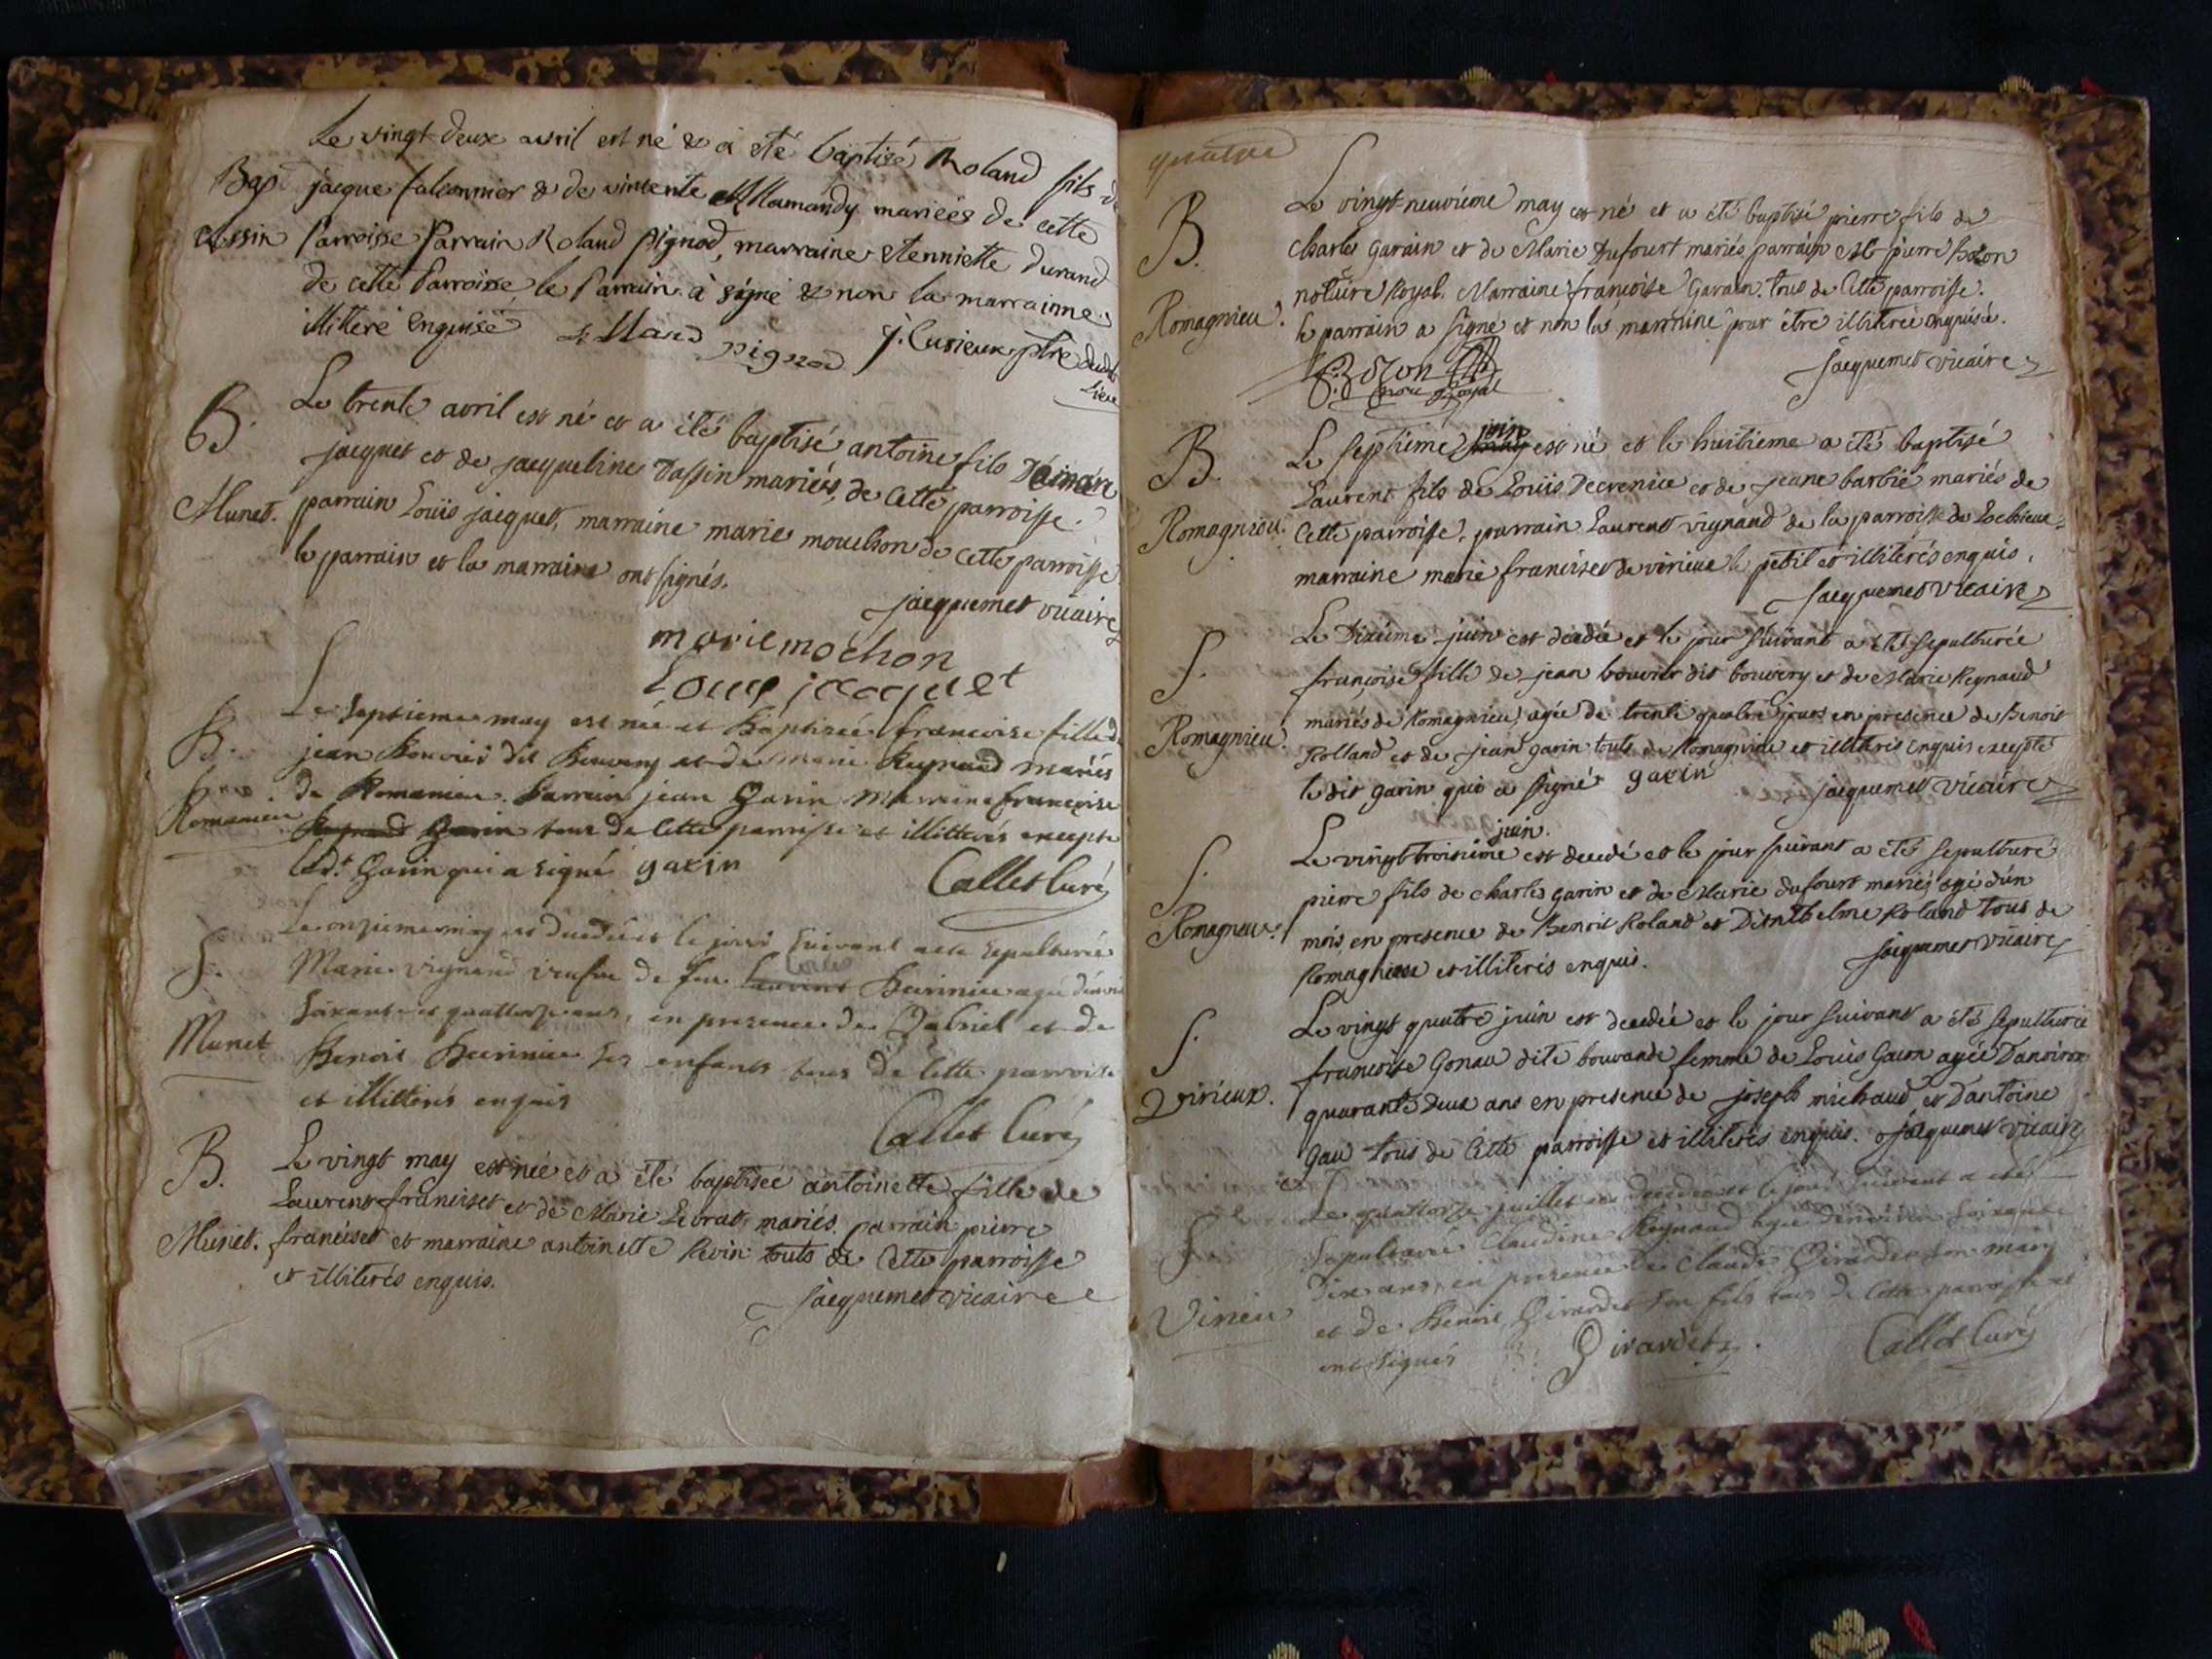 Le vingt-deux avril est né & a été baptisé Roland fils de
Bap jacque falconnier & de vincente Allamandy mariées de cette
Parroisse Parrain Roland pignod, marraine etenniette durand
de cette Parroisse le Parrain à signé & non la marrainne
illiteré enquise
pignod J. Curieux ptre dudit
Lieu
B. Le trente avril est né et a été baptisé antoine fils D'aimare
jacquet et de jacqueline Dassin mariés, de cette parroisse.
Munet. parrain Louis jacquet, marraine marie mouchon de cette parroisse
le parrain et la marraine ont signés.
jacquemet vicaire
marie mochon
Louis jacquet
B. Le septieme may est née et Baptisée francoise fille de
jean Bouvier dit Bouvery et de marie Reynaud mariés
de Romanieu. Parrain jean Garin Marraine francoise
Romanieu Reynaud Garin tous de cette parroisse et illitterés excepté
led.t Garin qui a signé garin
Callet Curé
S. Le onzieme may est decedée et le jour suivant a eté sepulturée
Marie vignand veufve de feu Laurent agée d'environ
soixante et quattorze ans, en presence de Gabriel et de
Munet Benoit ses enfants tous de cette parroisse
et illitterés enquis
Callet Curé
B. Le vingt may est née et a été baptisée antoinette fille de
Laurent franciset et de Marie Levrat mariés. parrain pierre
Munet. franciset et marraine antoinette Revin touts de cette parroisse
et illiterés enquis.
jacquemet vicaire
quatre
B. Le vingt neuvieme may est né et a été baptisé pierre fils de
charles garain et de Marie Dufourt mariés parrain Mr pierre Bozon
notaire Royal. Marraine françoise Garain. tous de cette parroisse.
Romagnieu. le parrain a signé et non la marraine pour être illiterée enquise.
jacquemet vicaire
Bozon
Royal
B. Le septieme may juin est né et le huitieme a été baptisé
Laurent fils de Louis Decrenice et de jeane barbié mariés de
Romagnieu. cette parroisse. parrain Laurent vignand de la parroisse de
marraine marie franciset de virieux le petit et illiterés enquis.
jacquemet vicaire
S. Le Dixieme juin est decedée et le jour suivant a été sepulturée
françoise fille de jean bouvier dit bouvery et de Marie Reynaud
Romagnieu. mariés de Romagnieu, agée de trente quatre jours en presence de Benoit
Rolland et de jean garin touts de Romagnieu et illiterés enquis excepté
le dit garin qui a signé garin jacquemet vicaire
S. Le vingt troisieme juin. est decedé et le jour suivant a été sepulturé
pierre fils de charles garin et de Marie dufourt mariés agé d'un
Romagnieu. mois en presence de Benoit Roland et D'Anthelme Roland tous de
Romagnieu et illiterés enquis.
jacquemet vicaire
S. Le vingt quatre juin est decedée et le jour suivant a été sepulturée
francoise Gonau dite bouvande femme de Louis Gauon agée D'anviron
Virieux. quarante deux ans en presence de joseph michaud et d'antoine
Gau tous de cette parroisse et illiterés enquis. jacquemet vicaire
S. Le quattorze juillet est decedée et le jour suivant a eté
sepulturée Claudine Reynaud agée d'environ soixante
dix ans, en presence de Claude Girardet son mary
Virieu et de Benoit Girardet son fils tous de cette parroisse et
ont signés Girardet. Callet Curé